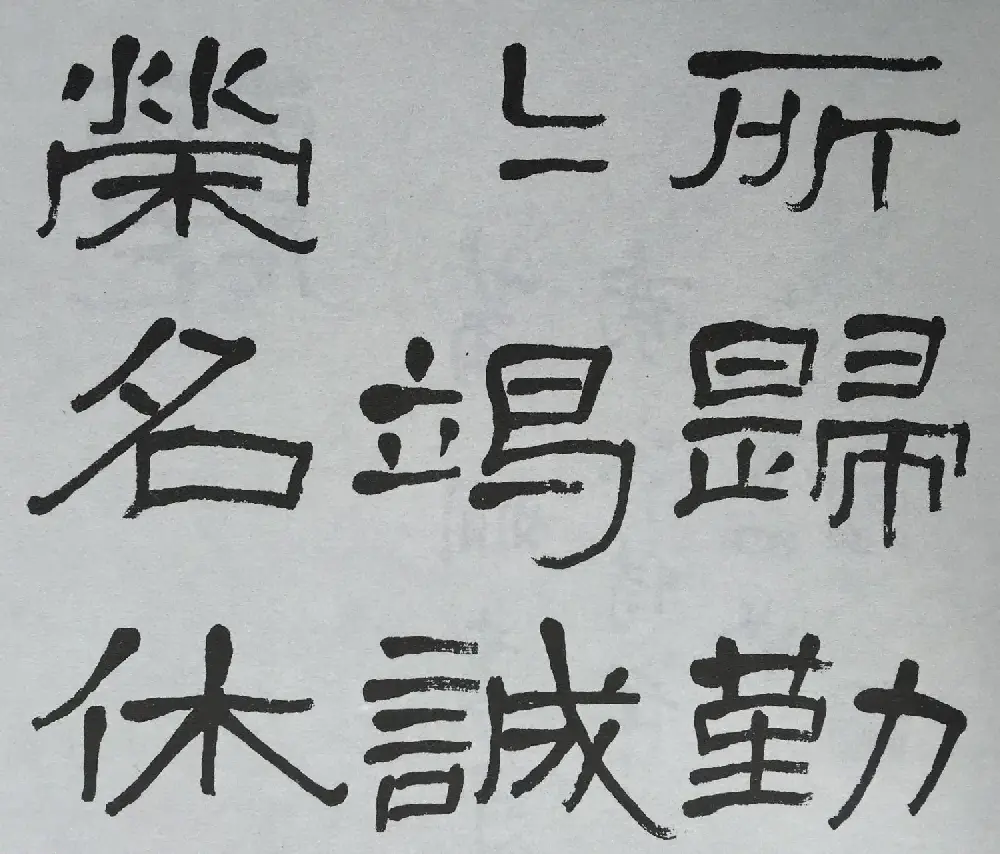 所歸勤
〻竭誠
榮名休